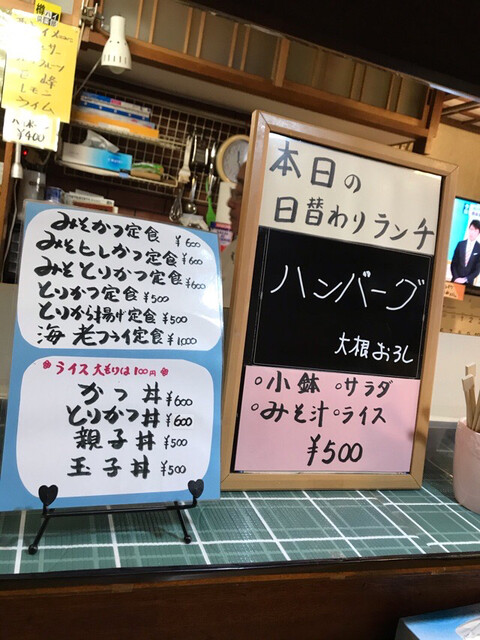 樽
ハイ
レモン
ライム
¥400
みそかつ定食 ¥600
みそヒレかつ定食 ¥600
みそとりかつ定食 ¥600
とりかつ定食 ¥500
とりから揚げ定食 ¥500
海老フライ定食 ¥1000
ライス大もりは100円
かつ丼 ¥600
とりかつ丼 ¥600
親子丼 ¥500
玉子丼 ¥500
本日の
日替わりランチ
ハンバーグ
大根おろし
○小鉢 ○サラダ
○みそ汁 ○ライス
¥500